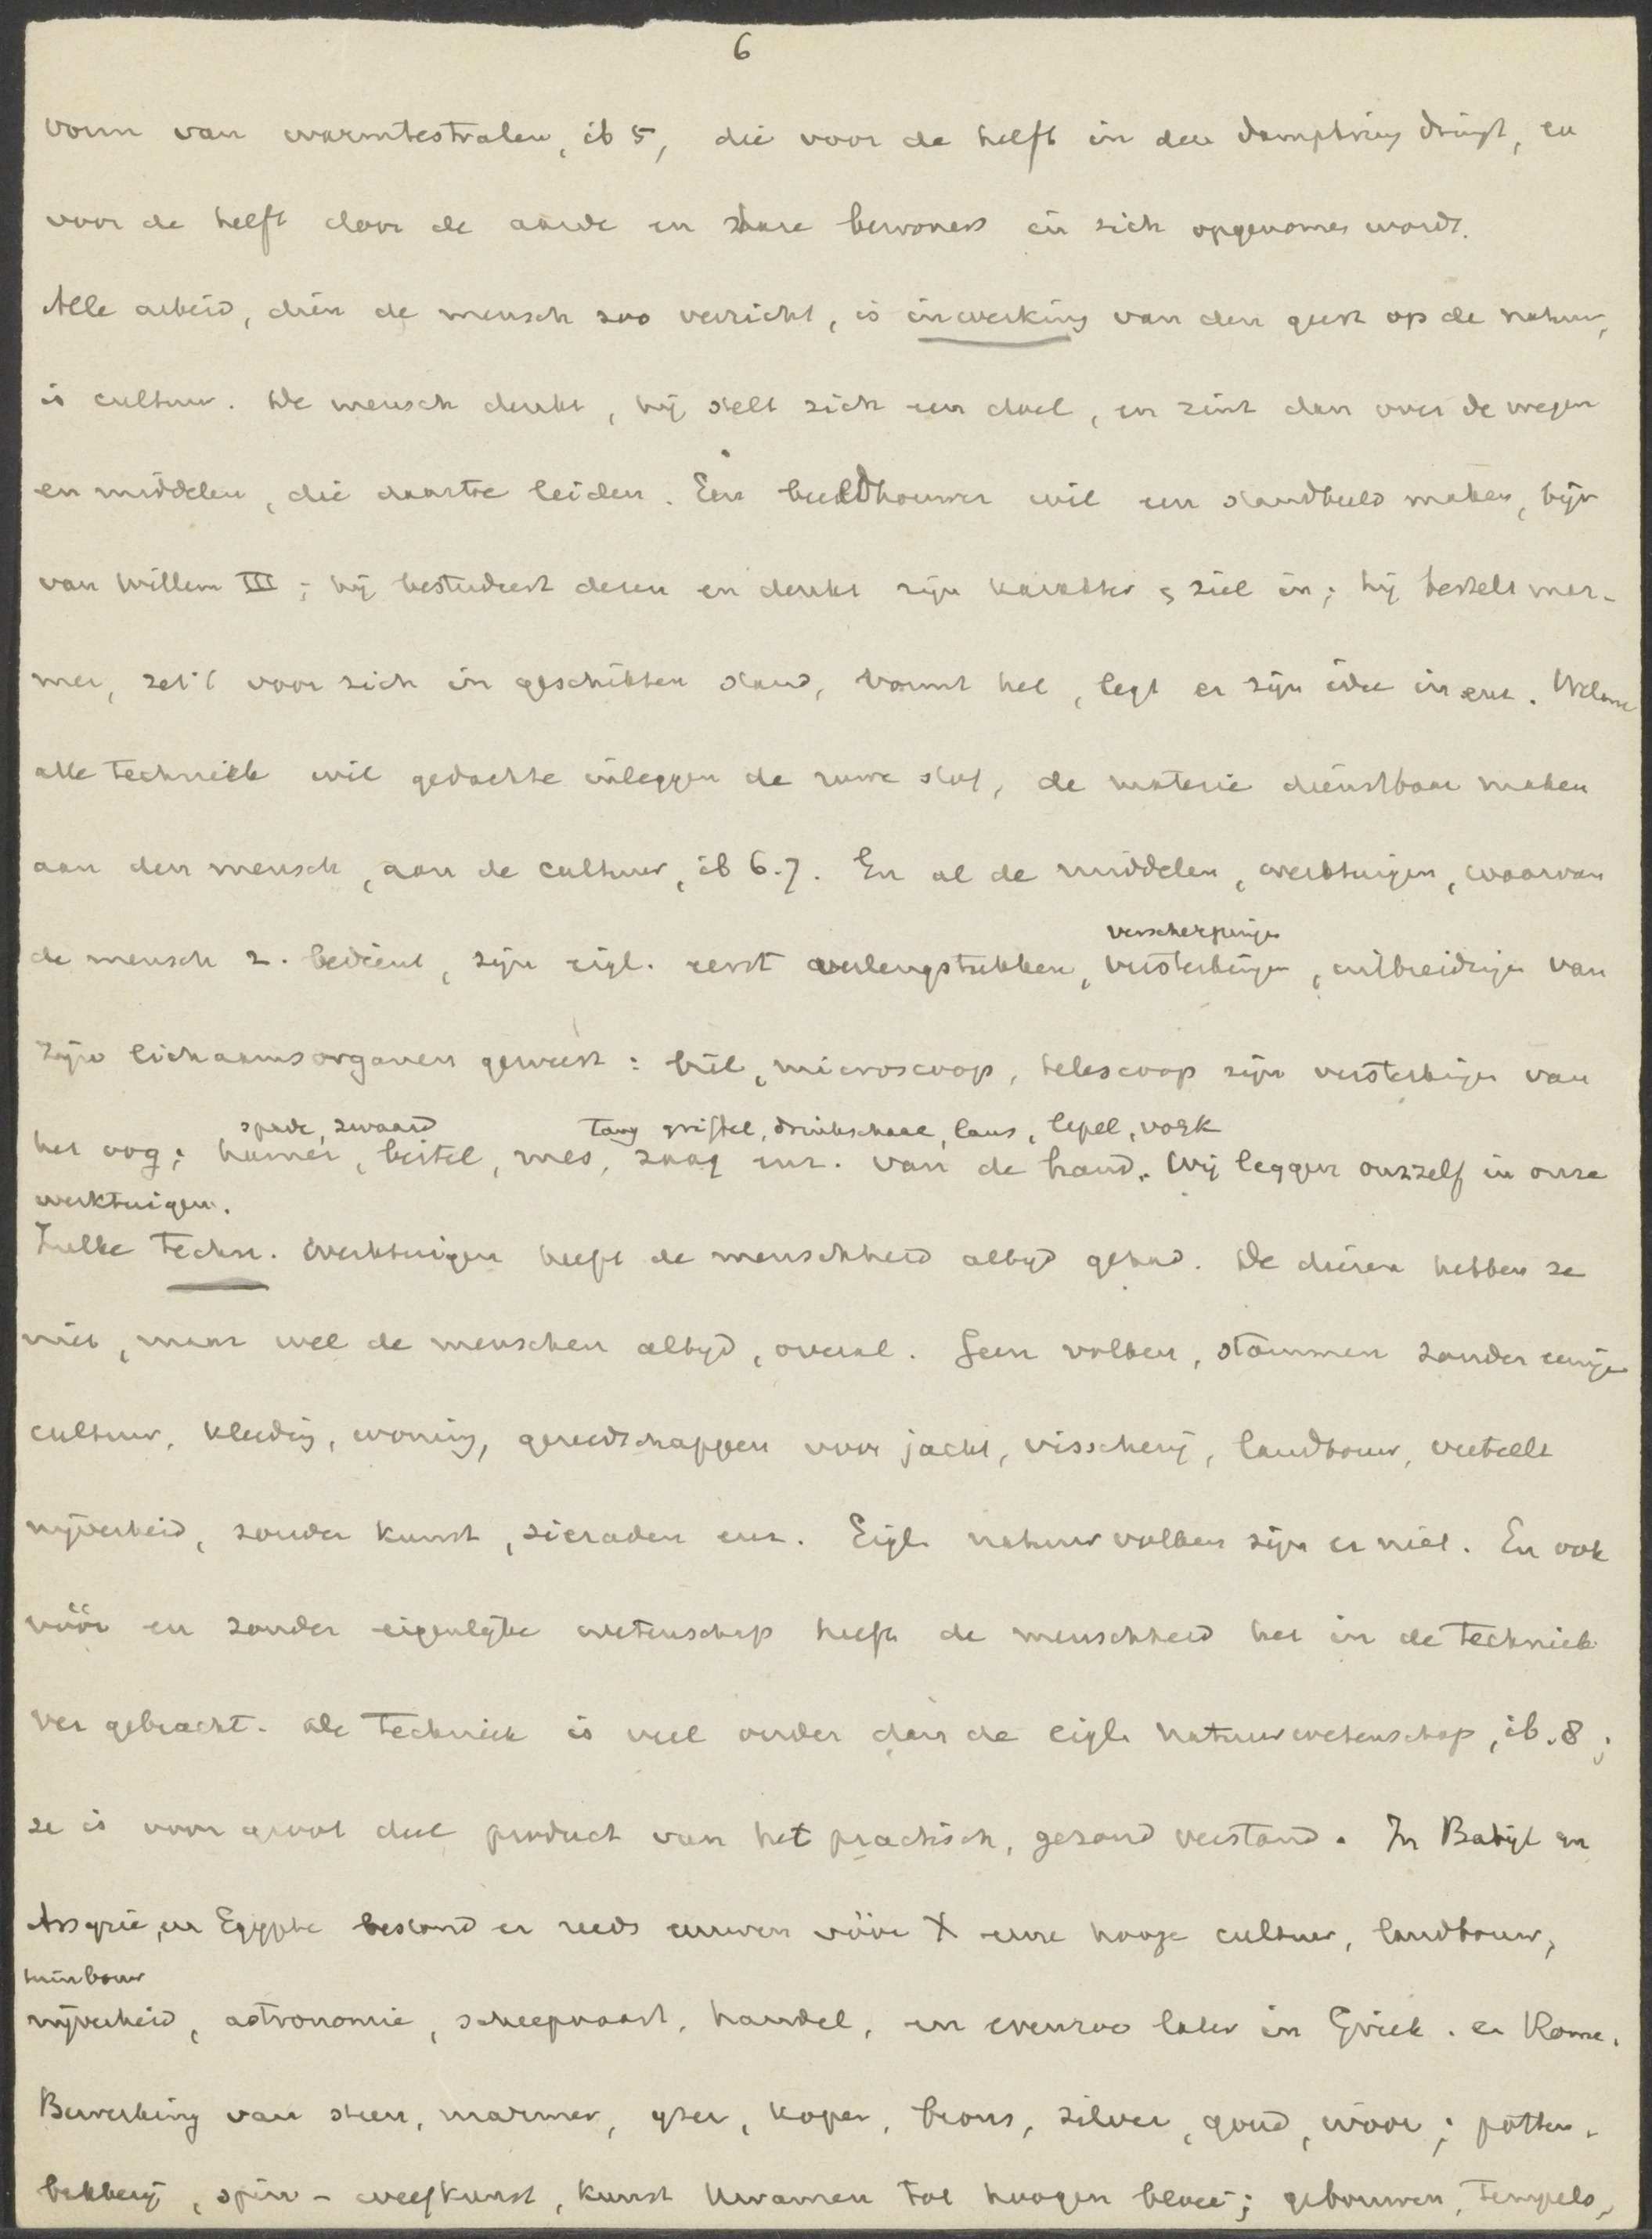 6
vorm van warmtestralen, ib 5, die voor de helft in den dampkring dringt, en
voor de helft door de aarde en hare bewoners in zich opgenomen wordt.
Alle arbeid, dien de mensch zoo verricht, is inwerking van den geest op de natuur,
is cultuur. De mensch denkt, hij stelt zich een doel, en zint dan over de wegen
en middelen, die daartoe leiden. Een beeldhouwer wil een standbeeld maken, bijv
van Willem III; hij bestudeert dezen en denkt zijn karakter, ziel in; hij bestelt mar-
mer, zet 't voor zich in geschikten stand, vormt het, legt er zijn idee in enz. Welnu
alle techniek wil gedachte inleggen de ruwe stof, de materie dienstbaar maken
aan den mensch, aan de cultuur, ib 6.7. En al de middelen, werktuigen, waarvan
verscherpingen
de mensch z. bedient, zijn eigl. eerst verlengstukken, versterkingen, uitbreidingen van
zijn lichaamsorganen geweest: bril, microscoop, telescoop zijn versterkingen van
spade, zwaard tang griffel, drinkschaal, lans, lepel, vork
het oog; hamer, beitel, mes, zaag enz. van de hand. Wij leggen onszelf in onze
werktuigen.
Zulke techn. werktuigen heeft de menschheid altijd gehad. De dieren hebben ze
niet, maar wel de menschen altijd, overal. Geen volken, stammen zonder eenige
cultuur, kleeding, woning, gereedschappen voor jacht, visscherij, landbouw, veeteelt
nijverheid, zonder kunst, sieraden enz. Eigl. natuurvolken zijn er niet. En ook
vóór en zonder eigenlijke wetenschap heeft de menschheid het in de techniek
ver gebracht. De techniek is veel ouder dan de eigl. natuurwetenschap, ib. 8;
ze is voor groot deel product van het practisch, gezond verstand. In Babyl en
Assyrie, en Egypte bestond er reeds eeuwen vóór X eene hooge cultuur, landbouw,
tuinbouw
nijverheid, astronomie, scheepvaart, handel, en evenzoo later in Griek. en Rome.
Bewerking van steen, marmer, yzer, koper, brons, zilver, goud, ivoor; potten-
bakkerij, spin- weefkunst, kunst kwamen tot hoogen bloei; gebouwen, tempels,